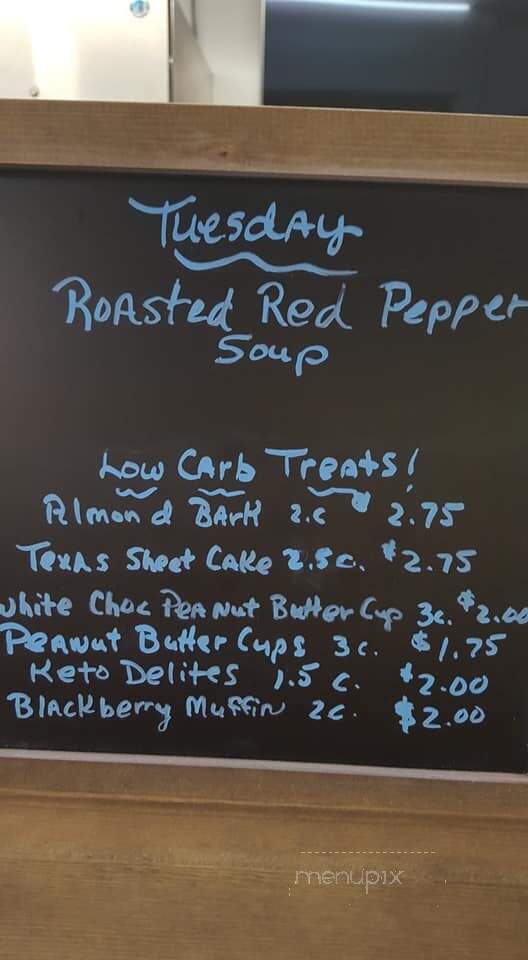 Tuesday
Roasted Red Pepper
Soup
Low Carb Treats!
Almond Bark 2.c $2.75
Texas Sheet Cake 2.5c. $2.75
White Choc Peanut Butter Cup 3c. $2.00
Peanut Butter Cups 3c. $1.75
Keto Delites 1.5 c. $2.00
Blackberry Muffin 2c. $2.00
menupix